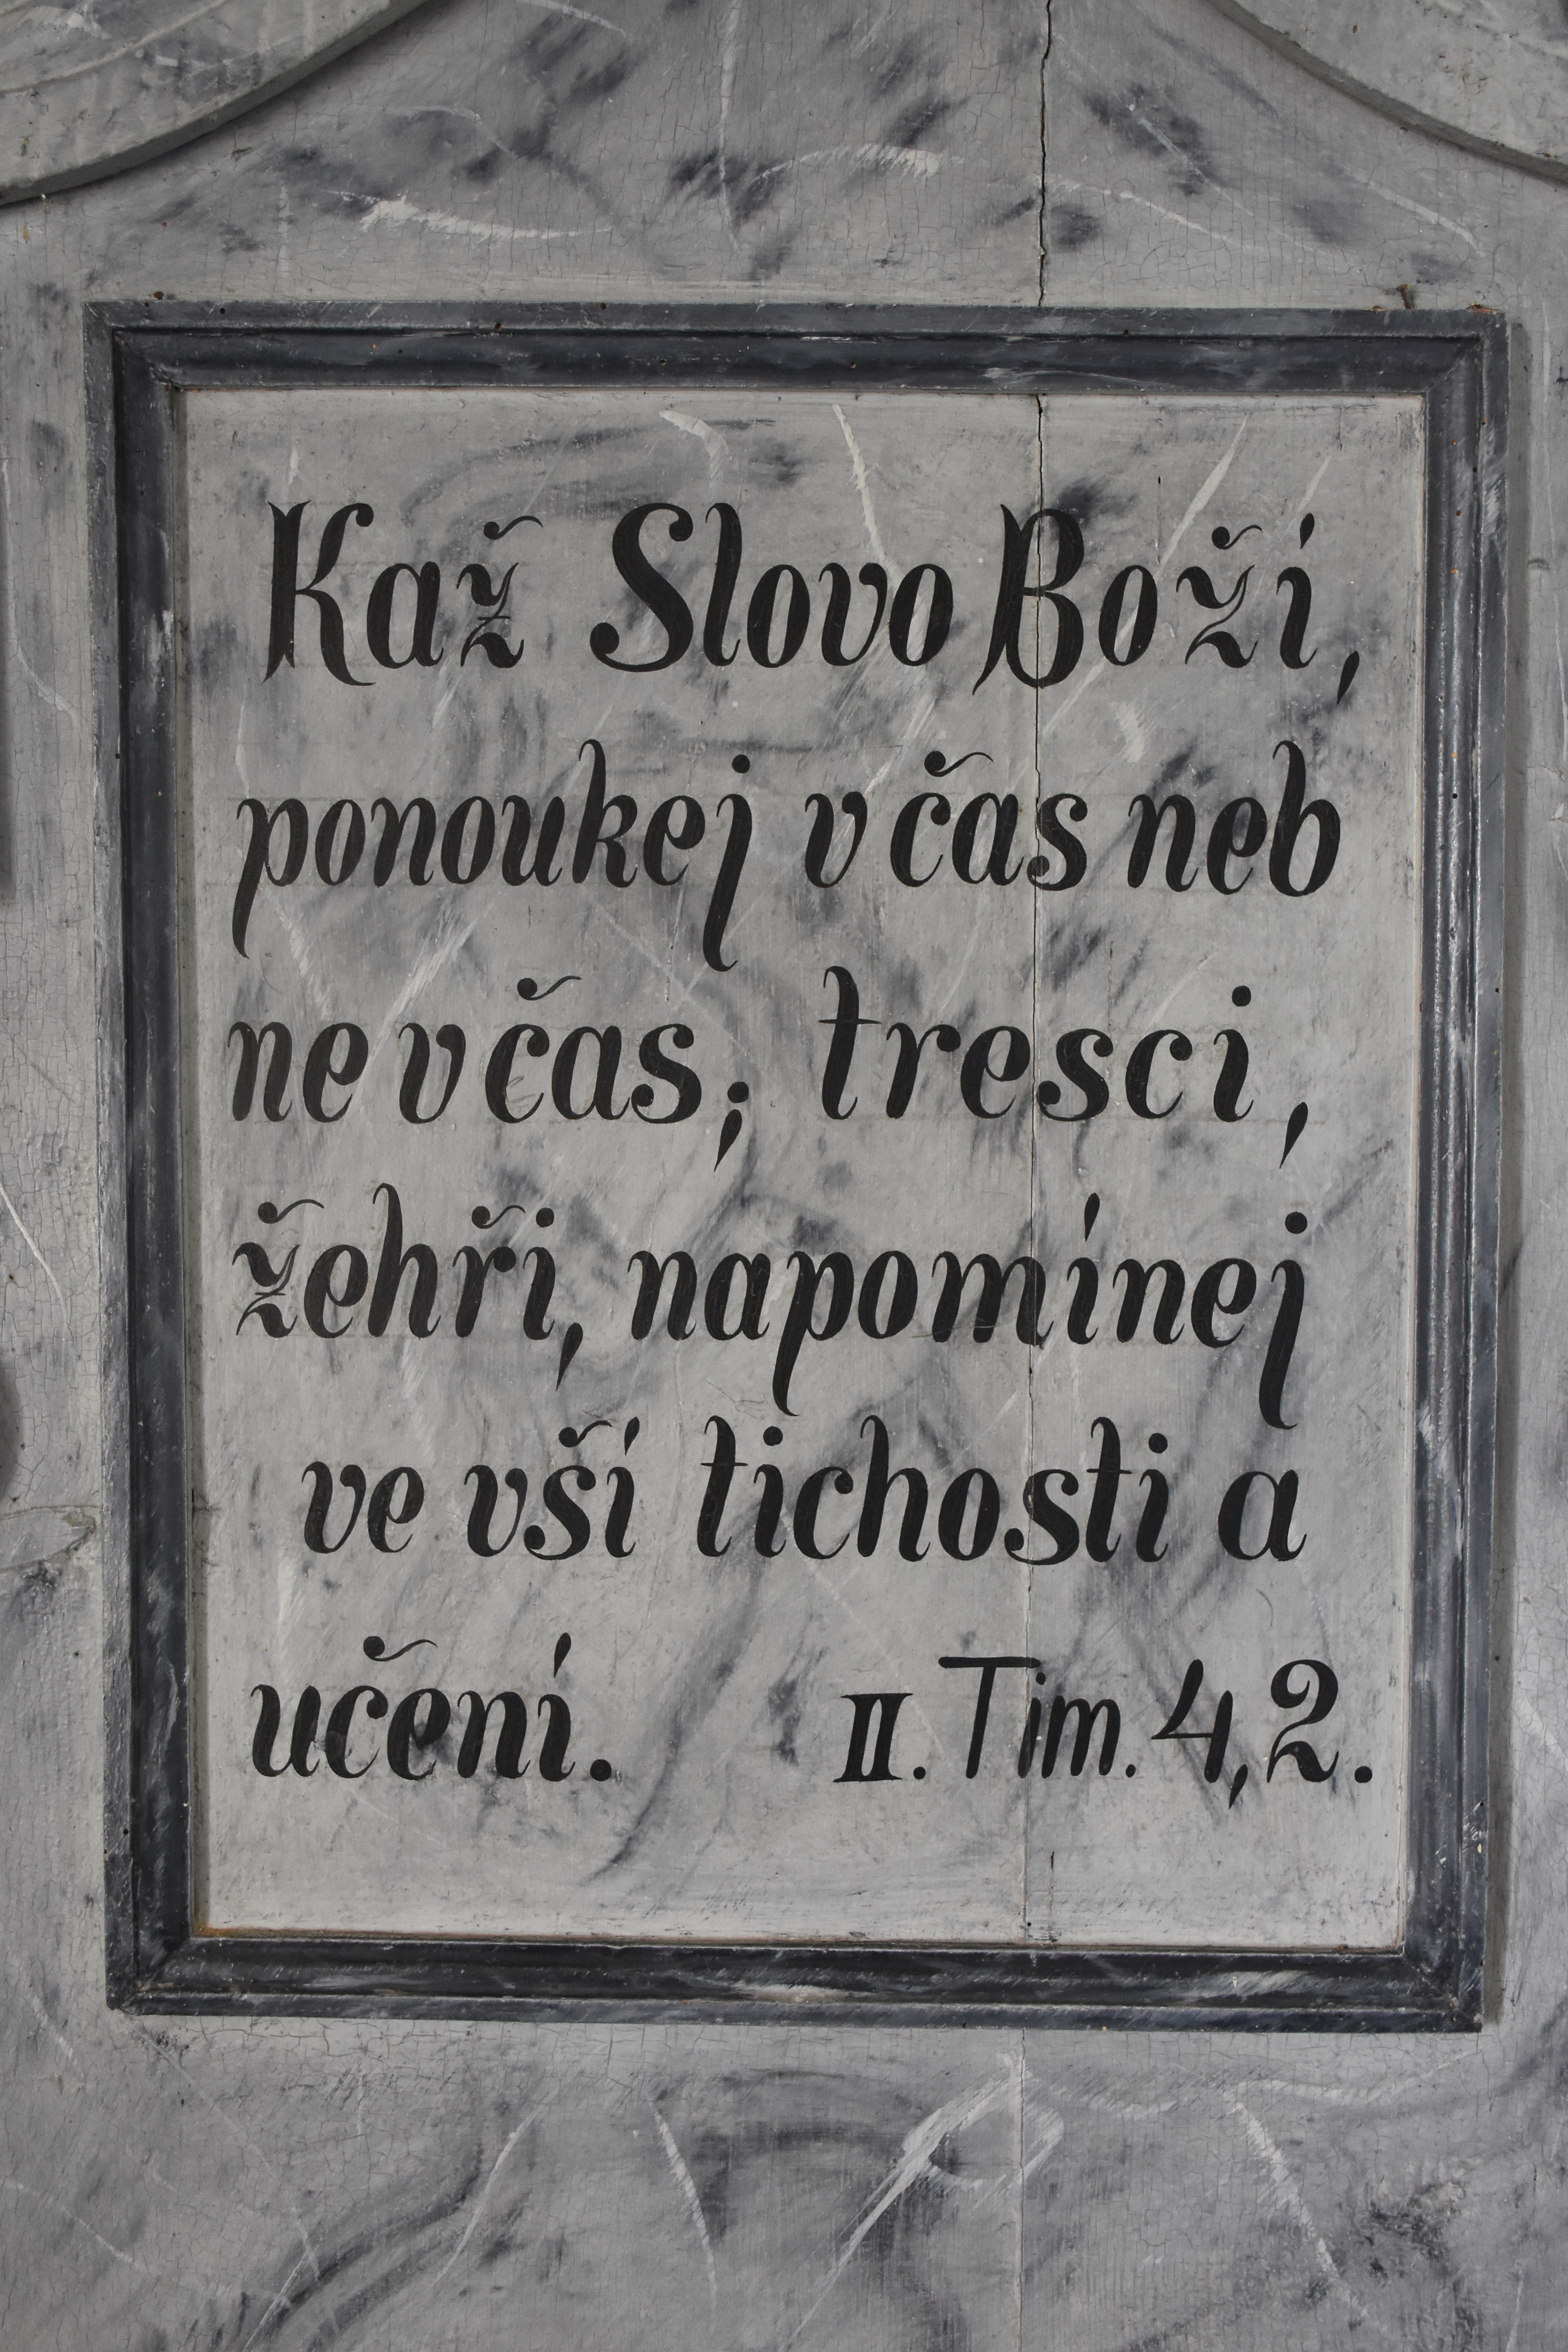 Kaž Slovo Boží,
ponoukej v čas neb
ne v čas; tresci,
žehři, napomínej
ve vší tichosti a
učení. II. Tim. 4,2.